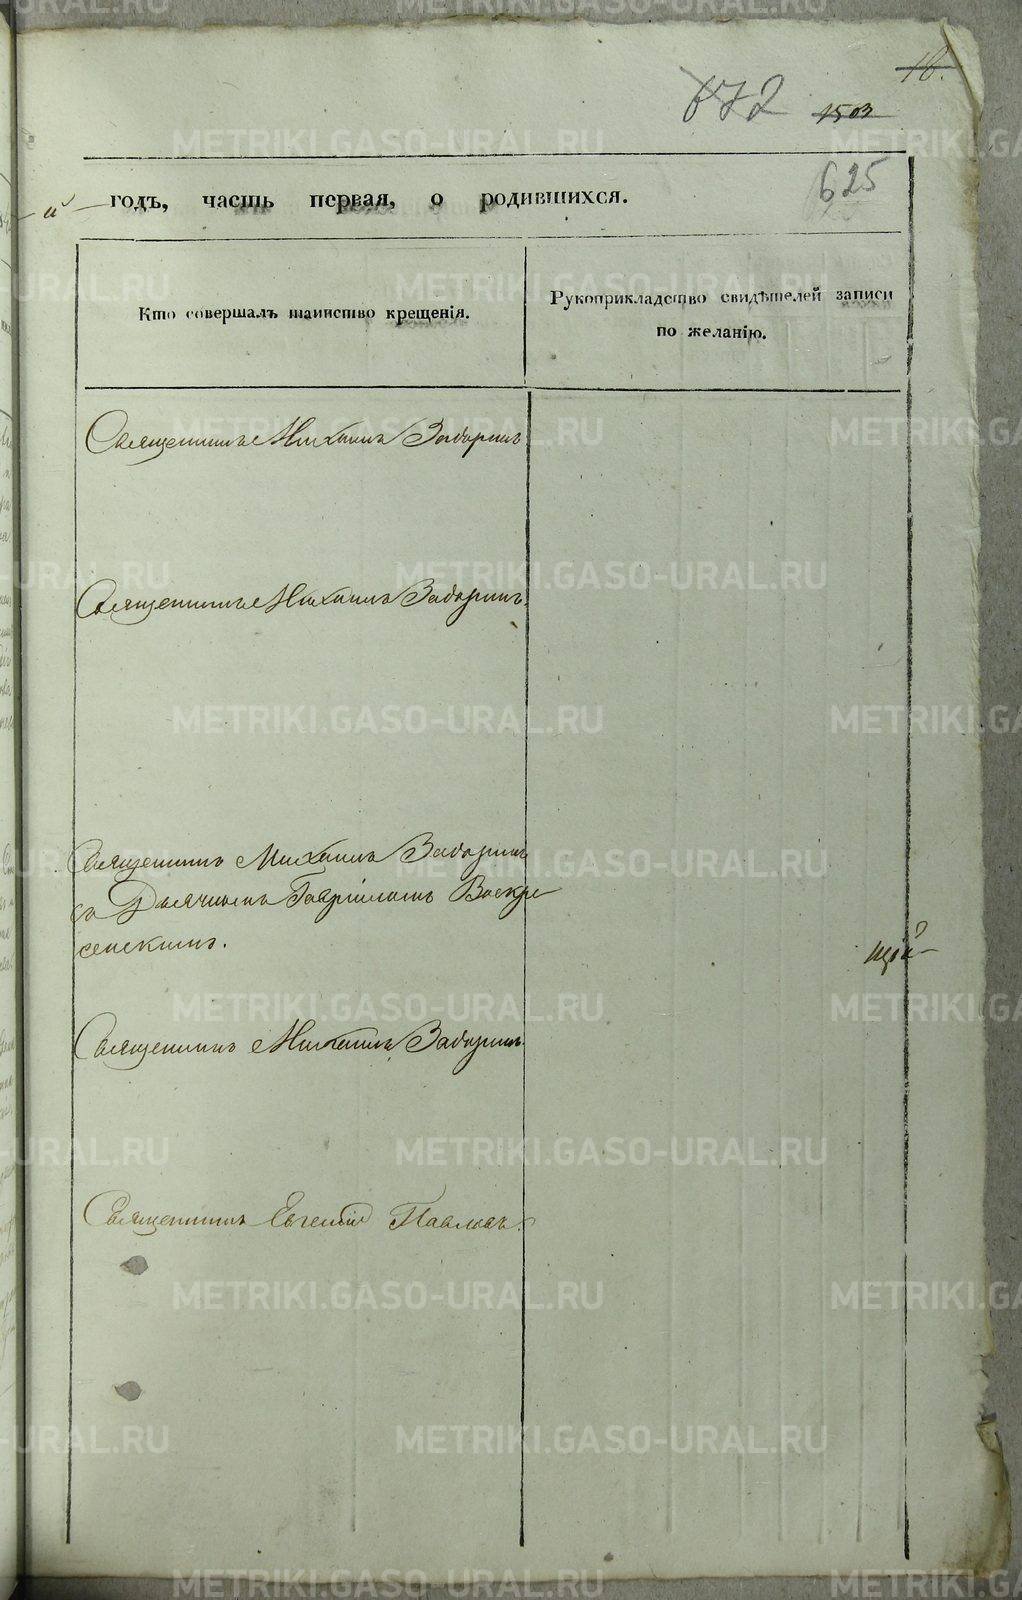 18.
672 1503
625
й годъ, часть первая, о родившихся.
Кто совершалъ таинство крещенія.
Рукоприкладство свидѣтелей записи
по желанію.
Священникъ Михаилъ Заборинъ
Священникъ Михаилъ Заборинъ.
Священникъ Михаилъ Заборинъ
съ Дьячкомъ Гавріиломъ Воскре
сенскимъ.
щій
Священникъ Михаилъ Заборинъ.
Священникъ Евгеній Павловъ.
METRIKI.GASO-URAL.RU